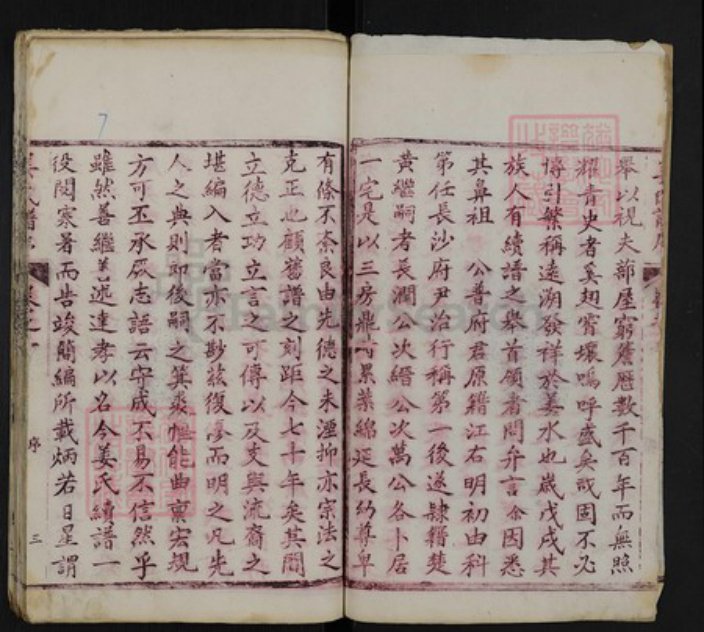 舉以視夫蔀屋窮簷歷數千百年而無照
耀青史者奚翅霄壤嗚呼盛矣哉固不必
博引繁稱遠溯發祥於姜水也歲戊戌其
族人有續譜之舉首領者問弁言余因悉
其鼻祖 公普府君原籍江右明初由科
第任長沙府尹治行稱第一後遂隸籍楚
黃繼嗣者長潤公次縉公次萬公各卜居
一宅是以三房鼎峙累葉綿延長幼尊卑
有條不紊良由先德之未湮抑亦宗法之
克正也顧舊譜之刻距今七十年矣其間
立德立功立言之可傳以及支與流裔之
堪編入者當亦不尠茲復廖而明之凡先
人之典則即後嗣之箕裘惟能曲稟宏規
方可丕承厥志語云守成不易不信然乎
雖然善繼善述達孝以名今姜氏續譜一
役閱寒暑而告竣簡編所載炳若日星謂
姜氏譜序
卷之一
序
三
7
FamilySearch